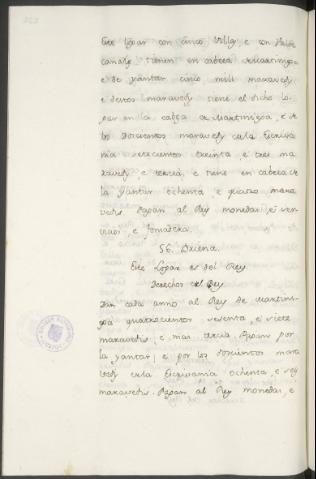 Este Logar con cinco Villas e con
canales tienen en cabeza de martiniega
e de yantar cinco mill maraveds
e destos maraveds tiene el dicho lo
gar en la cabeza de Martiniega, e de
los doscientos maraveds de la Escriva
nia setecientos treinta, e tres ma
raveds, e tercia, e tiene en cabeza de
la yantar ochenta, e quatro mara
vedis. Pagan al Rey monedas, e ser
vicios, e fonsadera.
56. Ducña.
Este Logar es del Rey.
Derechos del Rey
Dan cada anno al Rey de martini
ega quatrocientos sesenta, e siete
maravedis, e mas tercia. Pagan por
la yantar, e por los doscientos mara
veds de la Escrivania ochenta, e seis
maravedis. Pagan al Rey monedas, e